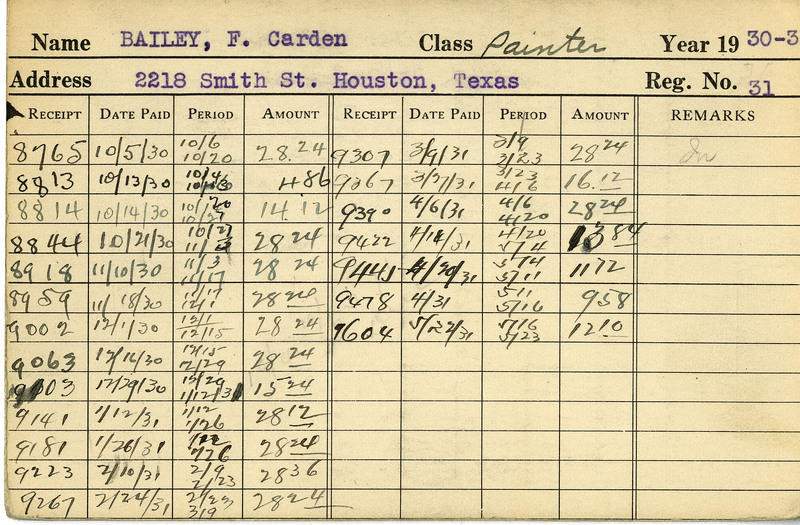 Name BAILEY, F. Carden Class Painter Year 19 30-3
Address 2218 Smith St. Houston, Texas Reg. No. 31
RECEIPT DATE PAID PERIOD AMOUNT RECEIPT DATE PAID PERIOD AMOUNT REMARKS
8765 10/5/30 10/6 10/20 28.24 9307 3/9/31 3/9 3/23 28 24
8813 10/13/30 4 86 9367 3/27/31 3/23 4/6 16.12
8814 10/14/30 10/20 10/27 14.12 9390 4/6/31 4/6 4/20 28 24
8844 10/21/30 10/27 28 24 9422 4/14/31 4/20 5/4 13 84
8918 11/10/30 11/3 11/17 28 24 9441 4/20/31 5/4 5/11 11 72
8959 11/18/30 11/17 12/1 28 24 9478 4/31 5/1 5/16 9 58
9002 12/1/30 12/1 12/15 28 24 9604 5/22/31 5/16 5/23 12 10
9063 12/16/30 12/15 12/29 28 24
9103 12/29/30 12/29 1/12/31 15 24
9141 1/12/31 1/12 1/26 28 12
9181 1/26/31 1/26 28 24
9223 2/10/31 2/9 2/23 28 36
9267 2/24/31 2/23 3/9 28 24